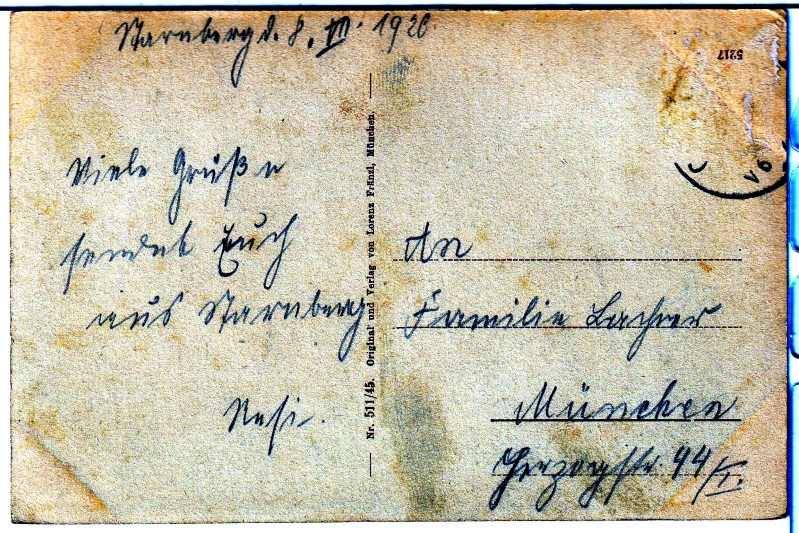 Starnberg d. 8. VII. 1920.
5217
Viele Grüße
sendet Euch
aus Starnberg
Resi.
Nr. 511/45. Original und Verlag von Lorenz Fränzl, München.
An
Familie Lachner
München
Herzogstr. 44/I.